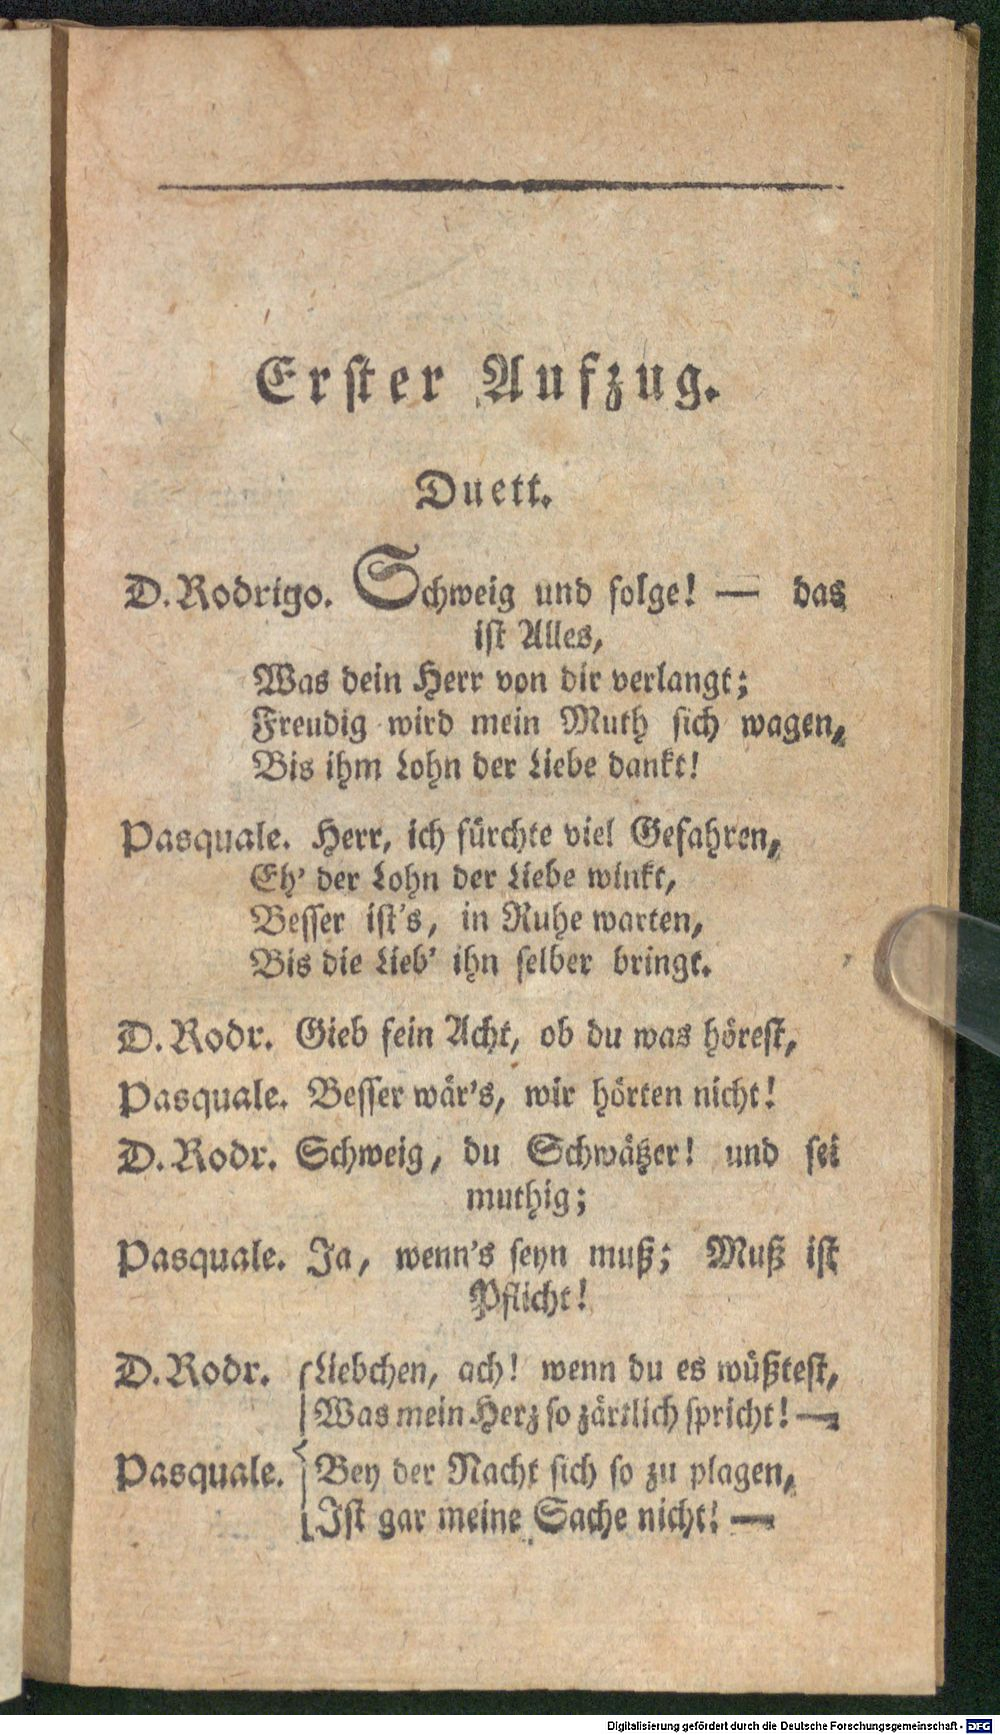 Erster Aufzug.
Duett.
D. Rodrigo. Schweig und folge! — das
ist Alles,
Was dein Herr von dir verlangt;
Freudig wird mein Muth sich wagen,
Bis ihm Lohn der Liebe dankt!
Pasquale. Herr, ich fürchte viel Gefahren,
Eh' der Lohn der Liebe winkt,
Besser ist's, in Ruhe warten,
Bis die Lieb' ihn selber bringt.
D. Rodr. Gieb fein Acht, ob du was hörest,
Pasquale. Besser wär's, wir hörten nicht!
D. Rodr. Schweig, du Schwätzer! und sei
muthig;
Pasquale. Ja, wenn's seyn muß; Muß ist
Pflicht!
D. Rodr. Liebchen, ach! wenn du es wüßtest,
Was mein Herz so zärtlich spricht! —
Pasquale. Bey der Nacht sich so zu plagen,
Ist gar meine Sache nicht! —
Digitalisierung gefördert durch die Deutsche Forschungsgemeinschaft - DFG